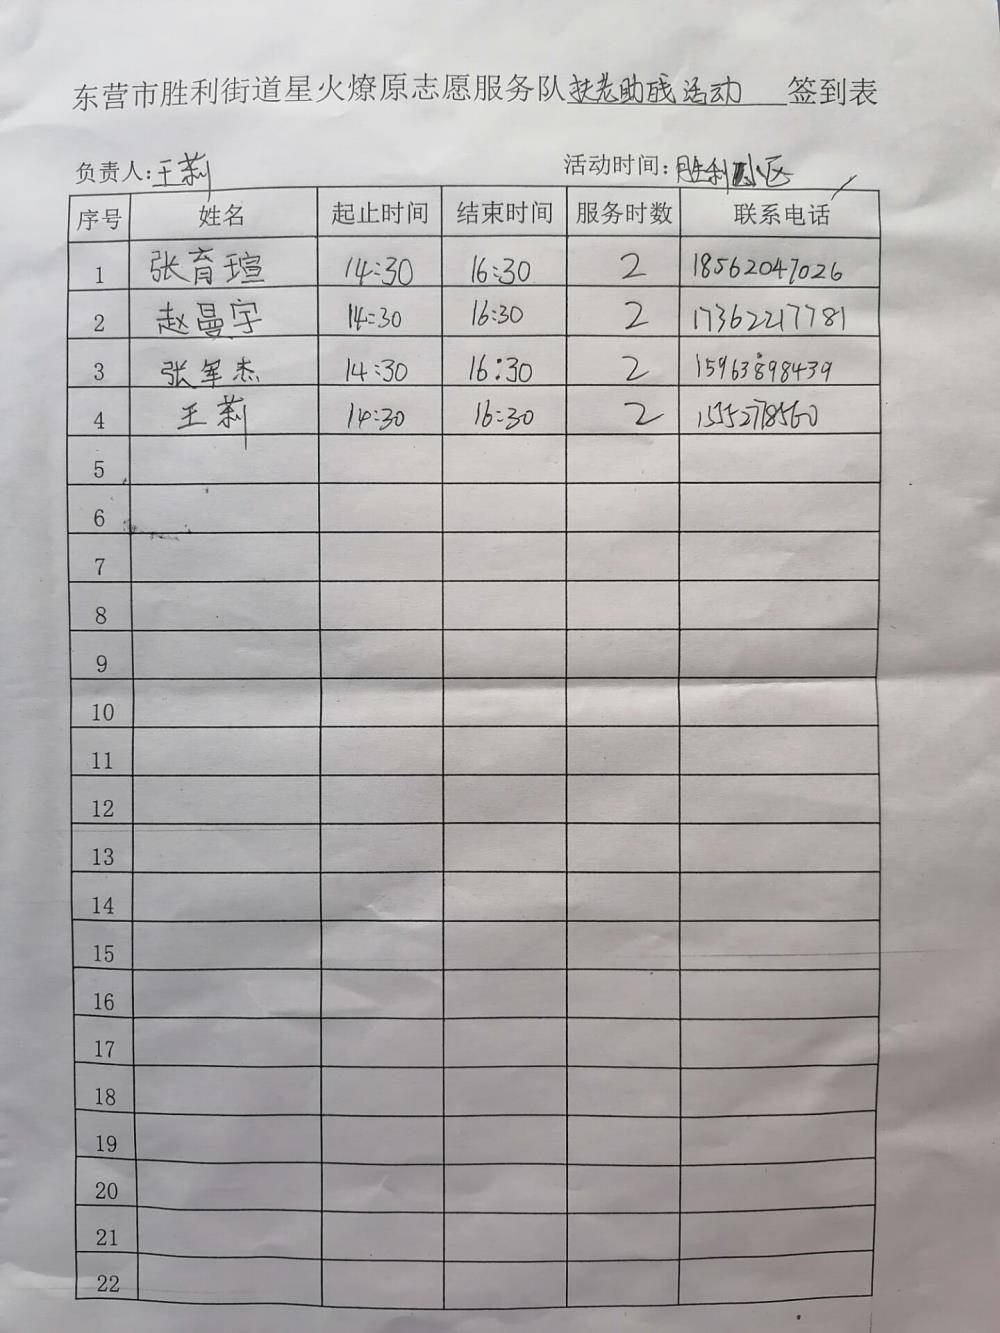 东营市胜利街道星火燎原志愿服务队扶老助残活动 签到表
负责人:王莉 活动时间:胜利小区
序号 姓名 起止时间 结束时间 服务时数 联系电话
1 张育瑄 14:30 16:30 2 18562047026
2 赵曼宇 14:30 16:30 2 17362217781
3 张军杰 14:30 16:30 2 15963898439
4 王莉 14:30 16:30 2 15552778560
5
6
7
8
9
10
11
12
13
14
15
16
17
18
19
20
21
22